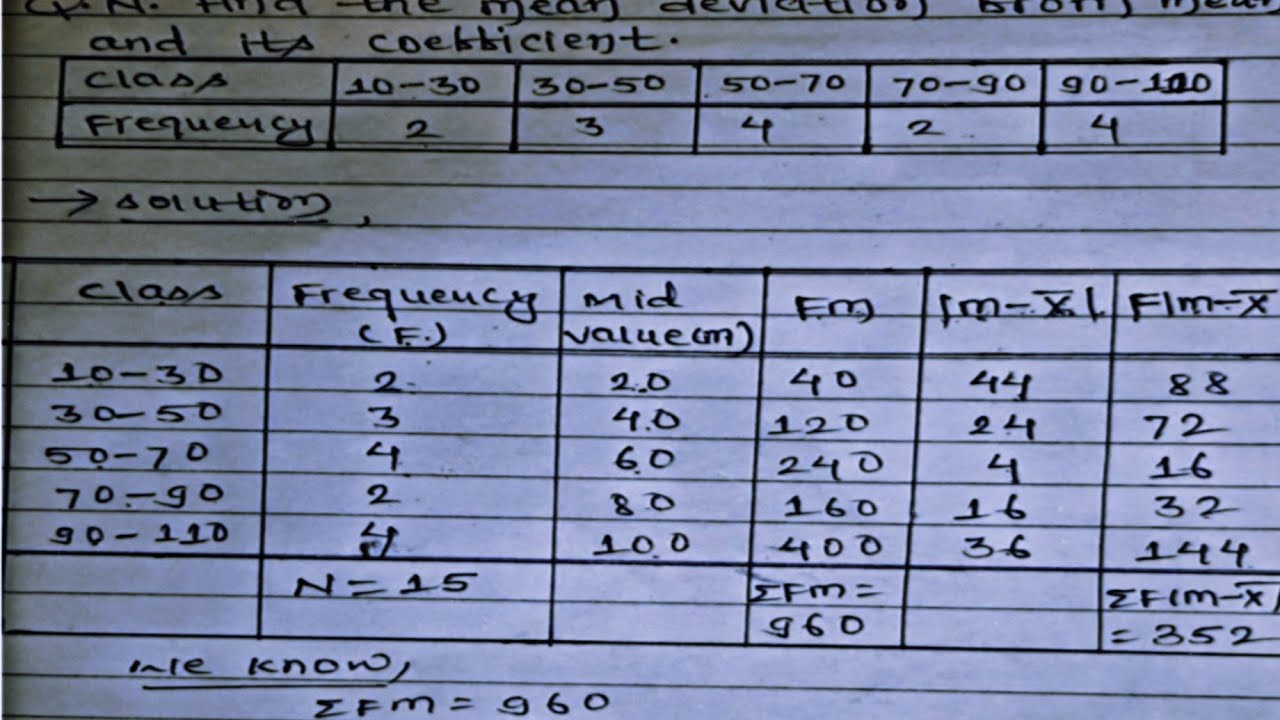 Q.N. Find the mean deviation from mean
and its coefficient.
Class 10-30 30-50 50-70 70-90 90-110
Frequency 2 3 4 2 4
→ solution,
Class Frequency (F.) Mid value(m) Fm |m-x̄| F|m-x̄
10-30 2 20 40 44 88
30-50 3 40 120 24 72
50-70 4 60 240 4 16
70-90 2 80 160 16 32
90-110 4 100 400 36 144
N = 15 ΣFm = 960 ΣF|m-x̄| = 352
we know,
ΣFm = 960